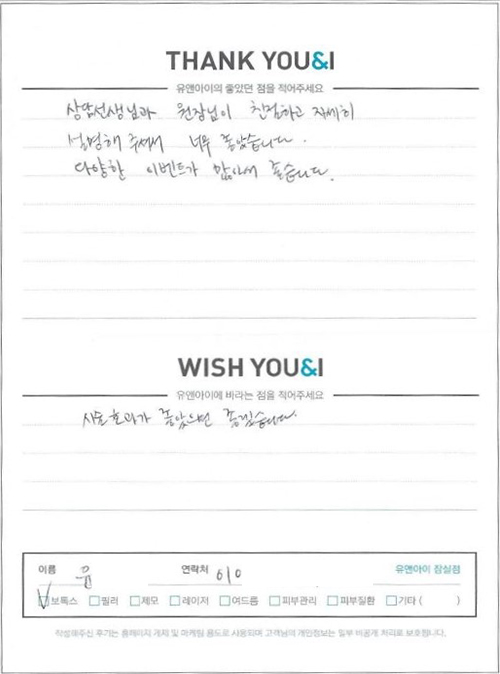 THANK YOU&I
유앤아이의 좋았던 점을 적어주세요
상담선생님과 원장님이 친절하고 자세히
설명해 주셔서 너무 좋았습니다.
다양한 이벤트가 많아서 좋습니다.
WISH YOU&I
유앤아이에 바라는 점을 적어주세요
시술효과가 좋았으면 좋겠습니다.
이름 윤 연락처 010 유앤아이 잠실점
보톡스 필러 제모 레이저 여드름 피부관리 피부질환 기타 ( )
작성해주신 후기는 홈페이지 게재 및 마케팅 용도로 사용되며 고객님의 개인정보는 일부 비공개 처리로 보호됩니다.